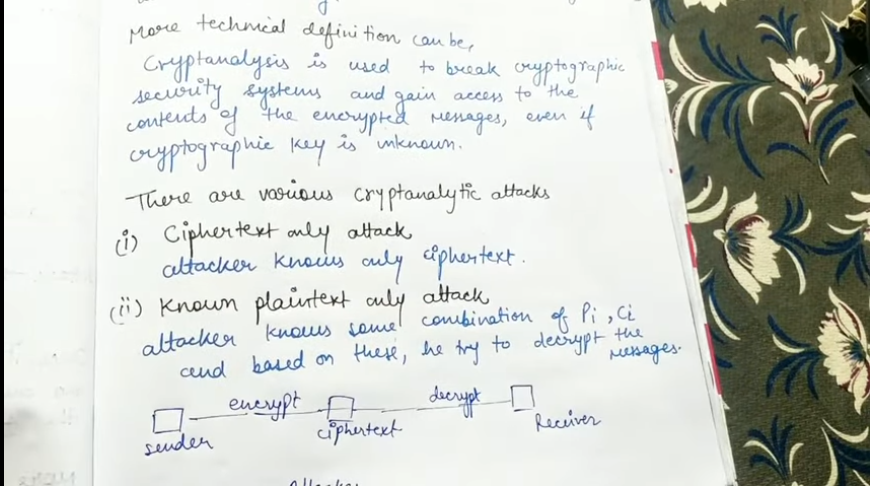 More technical definition can be,
Cryptanalysis is used to break cryptographic
security systems and gain access to the
contents of the encrypted messages, even if
cryptographic key is unknown.
There are various cryptanalytic attacks
(i) Ciphertext only attack
attacker knows only ciphertext.
(ii) Known plaintext only attack
attacker knows some combination of Pi, Ci
and based on these, he try to decrypt the
messages.
encrypt decrypt
sender ciphertext Receiver